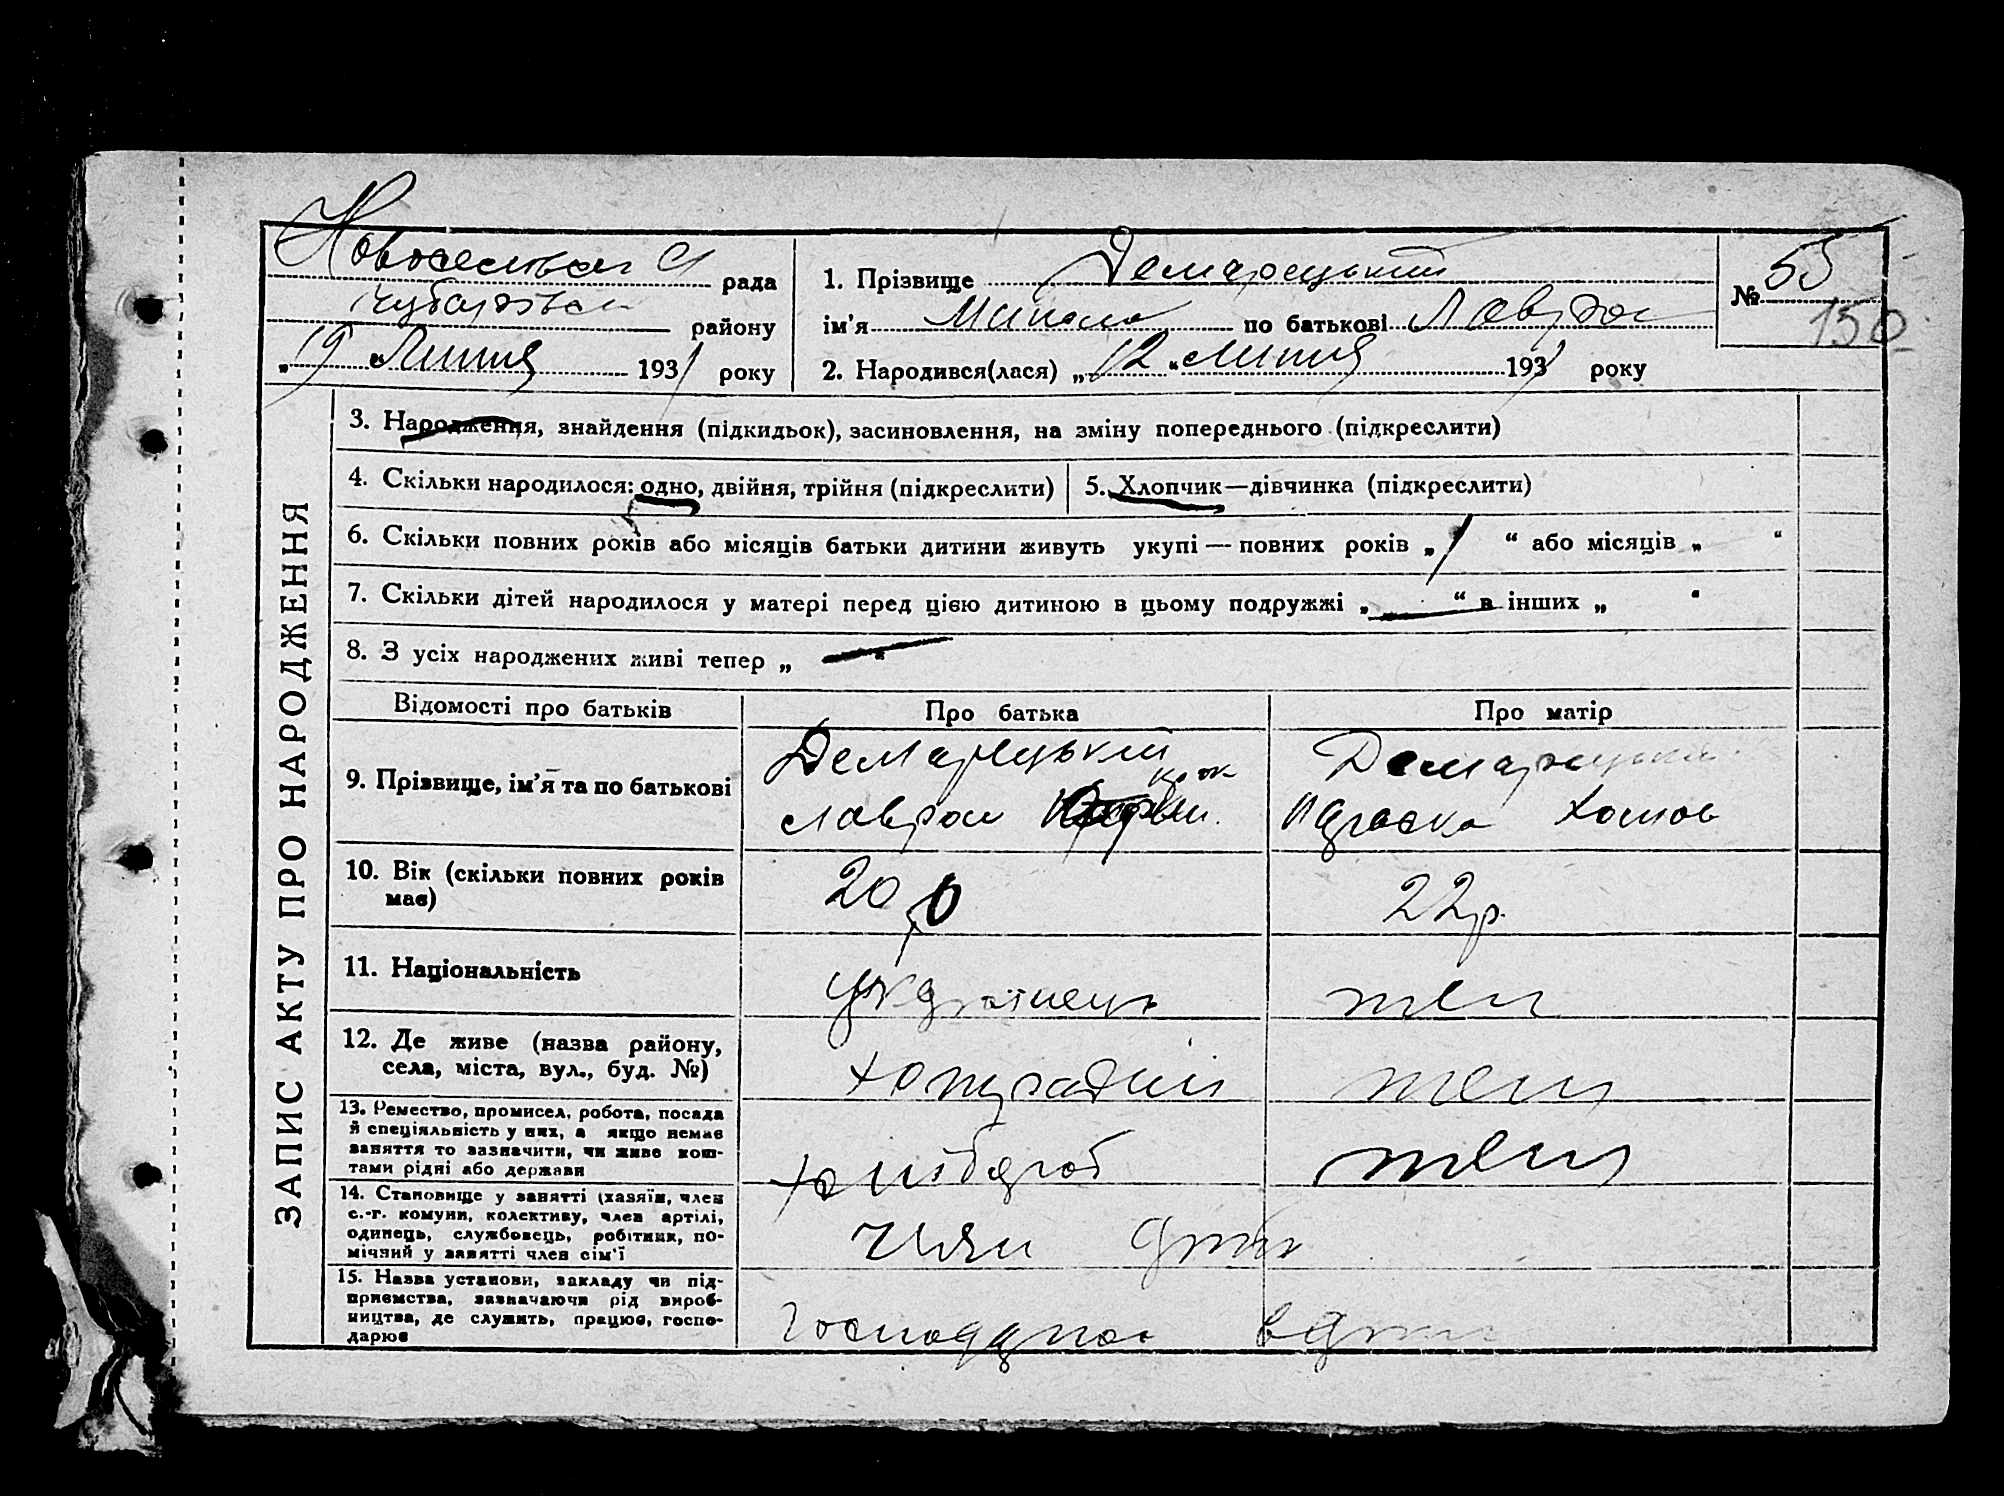 рада
району
„19“ Липня 1931 року
1. Прізвище Демарецький
ім'я Микола по батькові Лавром
2. Народився(лася) „12“ Липня 1931 року
№ 55
150
ЗАПИС АКТУ ПРО НАРОДЖЕННЯ
3. Народження, знайдення (підкидьок), засиновлення, на зміну попереднього (підкреслити)
4. Скільки народилося: одно, двійня, трійня (підкреслити)
5. Хлопчик—дівчинка (підкреслити)
6. Скільки повних років або місяців батьки дитини живуть укупі — повних років „1“ або місяців „ “
7. Скільки дітей народилося у матері перед цією дитиною в цьому подружжі „ — “ в інших „ “
8. З усіх народжених живі тепер „ — “
Відомості про батьків
Про батька
Про матір
9. Прізвище, ім'я та по батькові
Демарецький
Лавром
Демарецька
Хомов
10. Вік (скільки повних років має)
20
22 р.
11. Національність
українець
теж
12. Де живе (назва району, села, міста, вул., буд. №)
теж
13. Ремество, промисел, робота, посада
й спеціяльність у них, а якщо немає
заняття то зазначити, чи живе кош-
тами рідні або держави
хлібороб
теж
14. Становище у занятті (хазяїн, член
с.-г. комуни, колективу, член артілі,
одинець, службовець, робітник, по-
мічний у занятті член сім'ї
член
15. Назва установи, закладу чи під-
приємства, зазначаючи рід вироб-
ництва, де служить, працює, госпо-
дарює